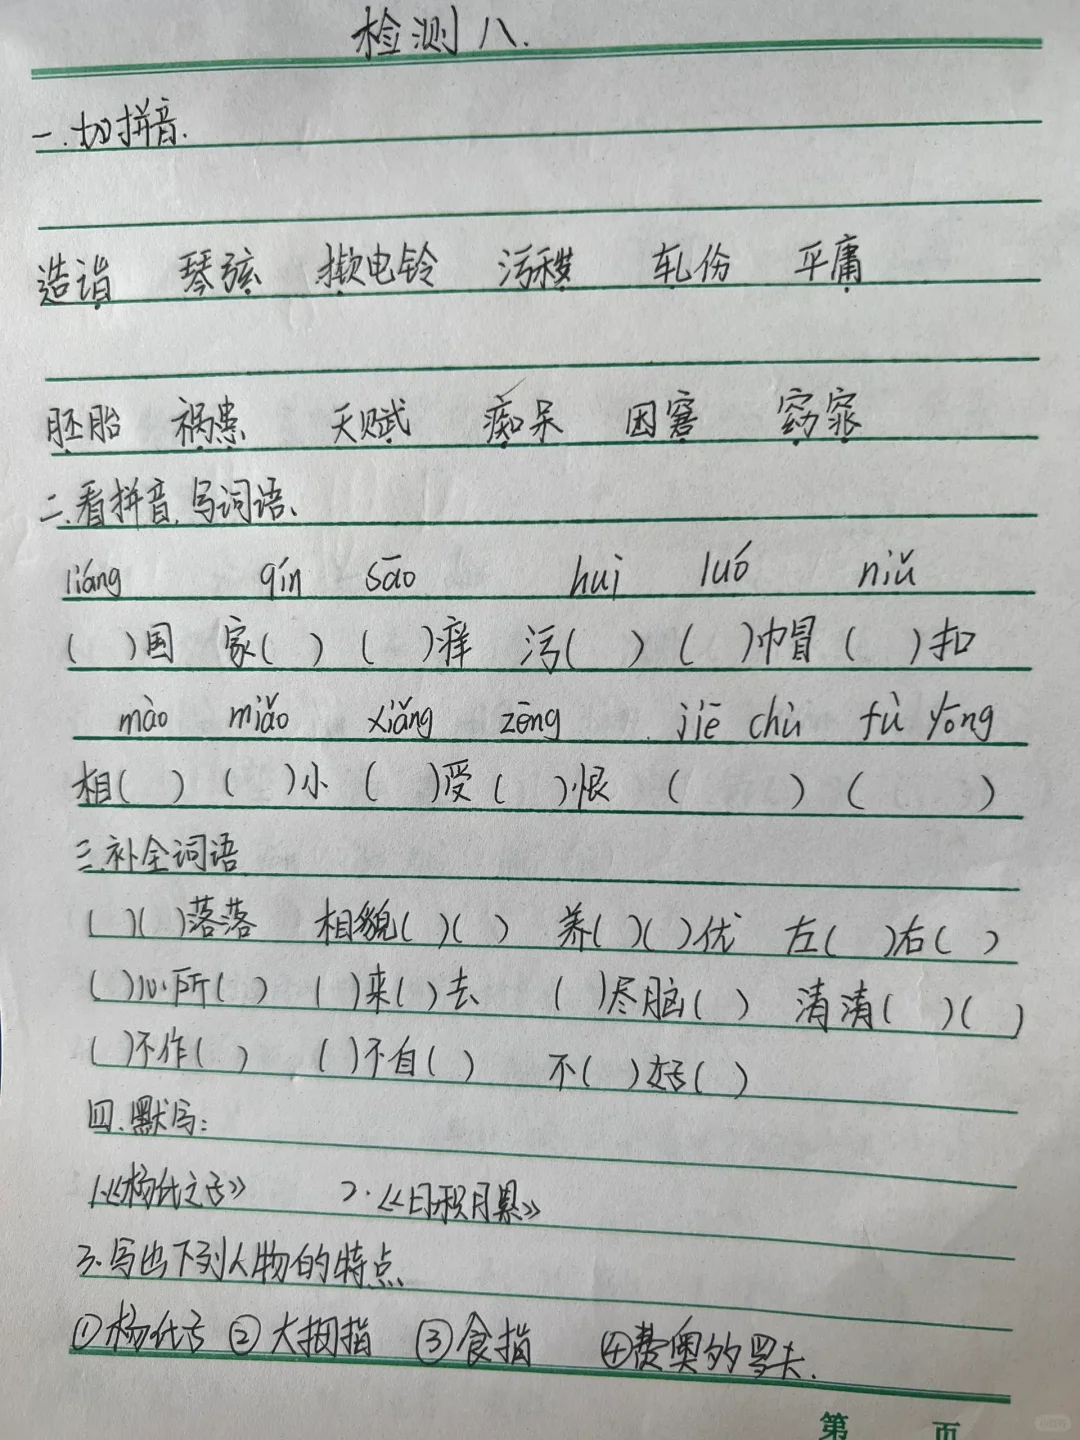 检测八.
一.切拼音.
造诣 琴弦 揿电铃 污秽 轧伤 平庸
胚胎 祸患 天赋 痴呆 困窘 窈窕
二.看拼音,写词语、
liáng qín sāo huì luó niǔ
( )国 家( ) ( )痒 污( ) ( )帽 ( )扣
mào miǎo xiǎng zēng jiē chù fù yōng
相( ) ( )小 ( )受 ( )恨 ( ) ( )
三.补全词语
( )( )落落 相貌( )( ) 养( )( )优 左( )右( )
( )心所( ) ( )来( )去 ( )尽脑( ) 清清( )( )
( )不作( ) ( )不自( ) 不( )好( )
四.默写:
1.《杨氏之子》 2.《日积月累》
3.写出下列人物的特点
①杨氏子 ②大拇指 ③食指 ④费奥多罗夫.
第 页